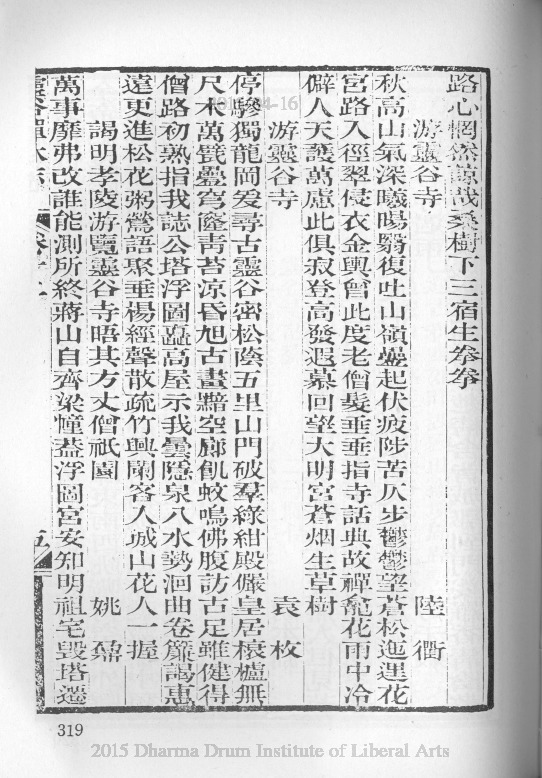 路心惘然諒哉桑樹下三宿生拳拳
游靈谷寺 陸衢
秋高山氣深曦暘翳復吐山嶺疊起伏疲陟苦仄步鬱鬱望蒼松迤邐花
宮路入徑翠侵衣金輿曾此度老僧髮垂垂指寺話典故禪龕花雨中冷
僻人天護萬慮此俱寂登高發遐慕回望大明宮蒼烟生草樹
游靈谷寺 袁枚
停驂獨龍岡爰尋古靈谷密松蔭五里山門破羣綠紺殿儼皇居榱櫨無
尺木萬甓疊穹窿青苔涼昏旭古畫黯空廊飢蚊鳴佛腹訪古足雖健得
僧路初熟指我誌公塔浮圖矗高屋示我曇隱泉八水勢洄曲卷簾謁惠
遠更進松花粥鶯語聚垂楊經聲散疏竹興闌客入城山花人一握
謁明孝陵游覽靈谷寺晤其方丈僧祇園 姚鼐
萬事靡弗改誰能測所終蔣山自齊梁幢葢浮圖宮安知明祖宅毀塔遷
靈谷禪林志 卷十二 五
319
2015 Dharma Drum Institute of Liberal Arts